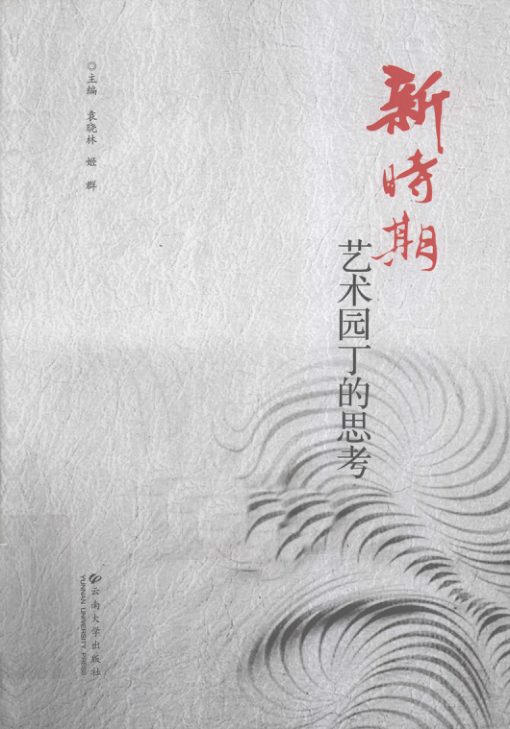 新時期
艺术园丁的思考
◎主编 袁晓林 姬群
云南大学出版社
YUNNAN UNIVERSITY PRESS